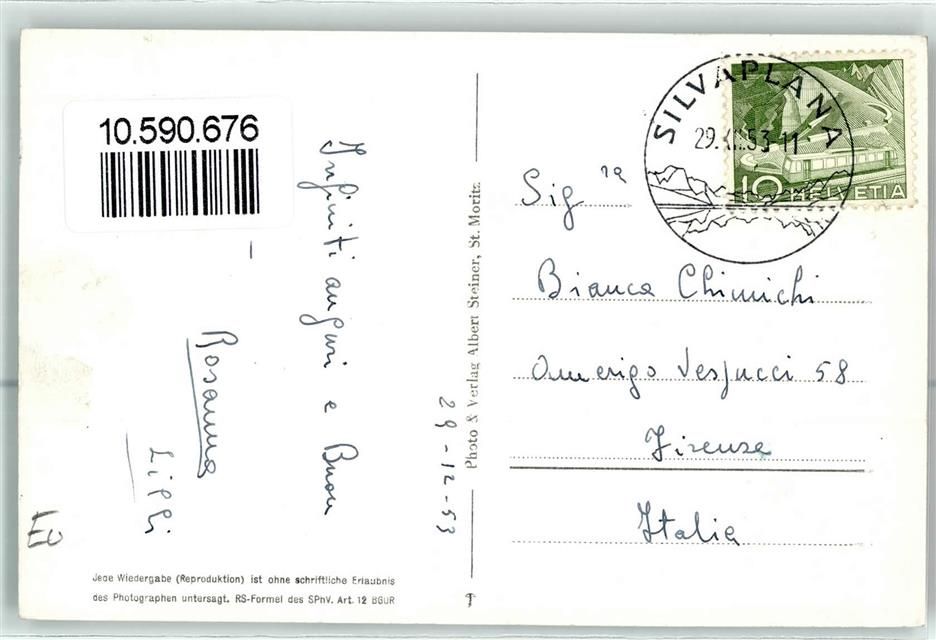 10.590.676
Infiniti auguri e Buon
Rosanna
Lippi
29-12-53
Photo & Verlag Albert Steiner, St. Moritz
SILVAPLANA
29.XII.53-11
10 HELVETIA
Sig ra
Bianca Chimichi
Amerigo Vespucci 58
Firenze
Italia
EU
Jede Wiedergabe (Reproduktion) ist ohne schriftliche Erlaubnis
des Photographen untersagt. RS-Formel des SPhV. Art. 12 BGUR